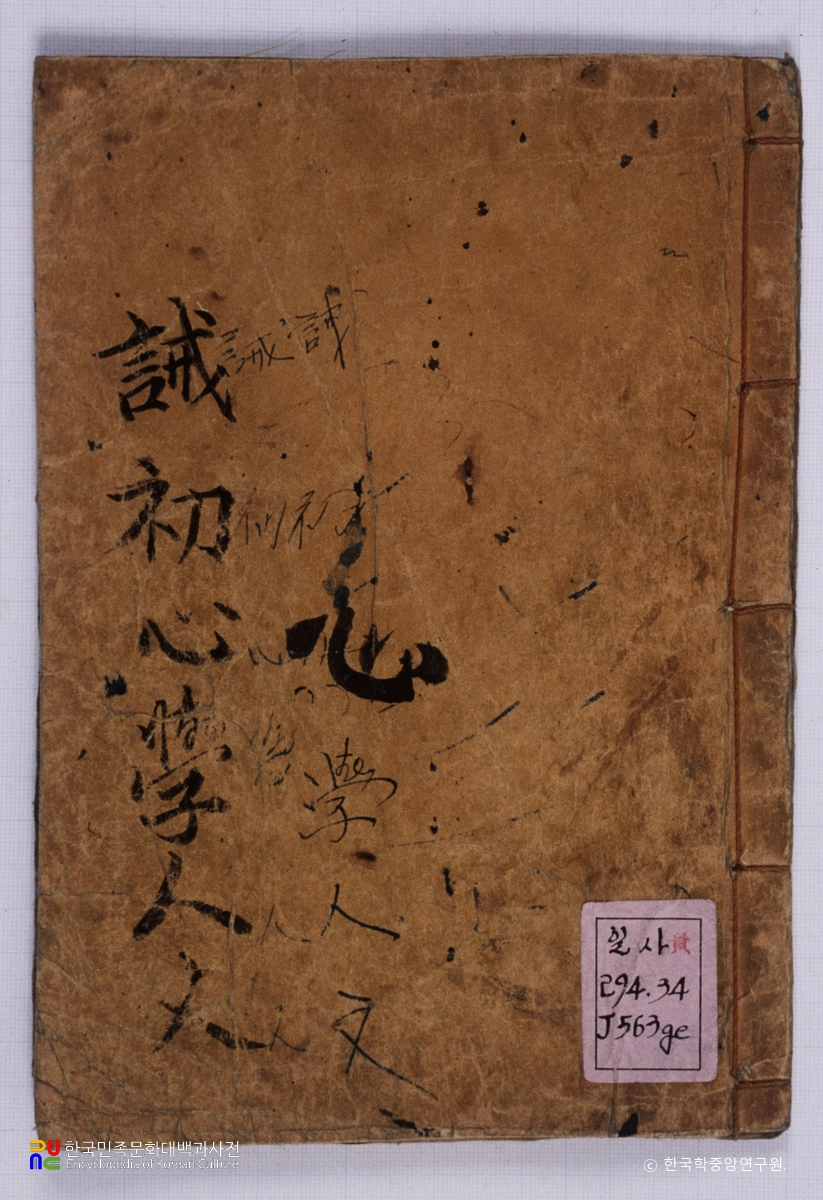 誡初心學人文
誡 誡
初 初
心
學
人
文
일사 貴
294.34
J563ge
한국민족문화대백과사전
Encyclopedia of Korean Culture
© 한국학중앙연구원.